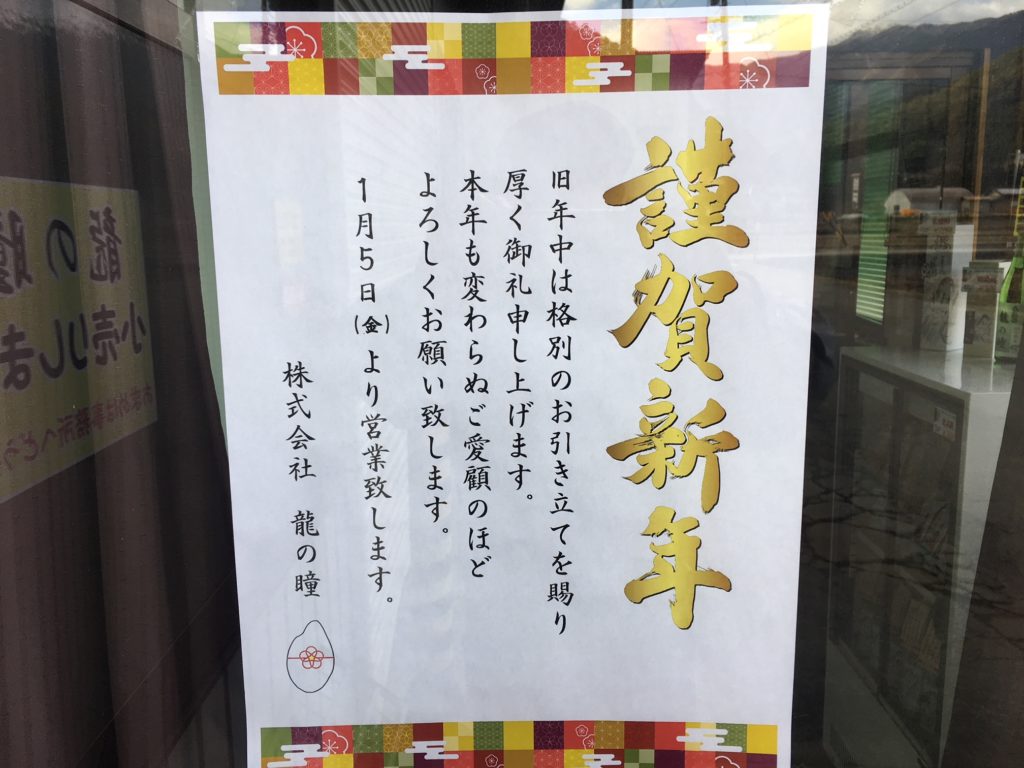 謹賀新年
旧年中は格別のお引き立てを賜り
厚く御礼申し上げます。
本年も変わらぬご愛顧のほど
よろしくお願い致します。
1月5日(金)より営業致します。
株式会社 龍の瞳
龍の瞳
小売りしま
お求めは事務所へどう